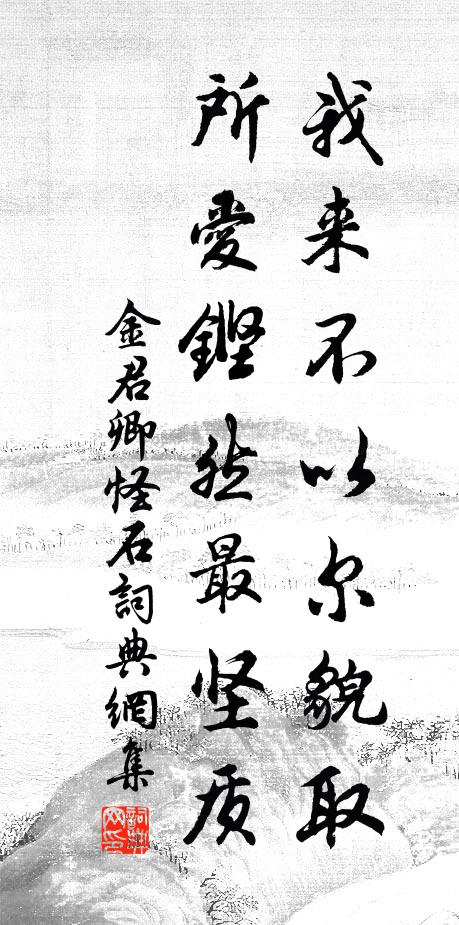 我来不以尔貌取
所爱鏗然最坚质
金君卿怪石詞典網集
詞典网印